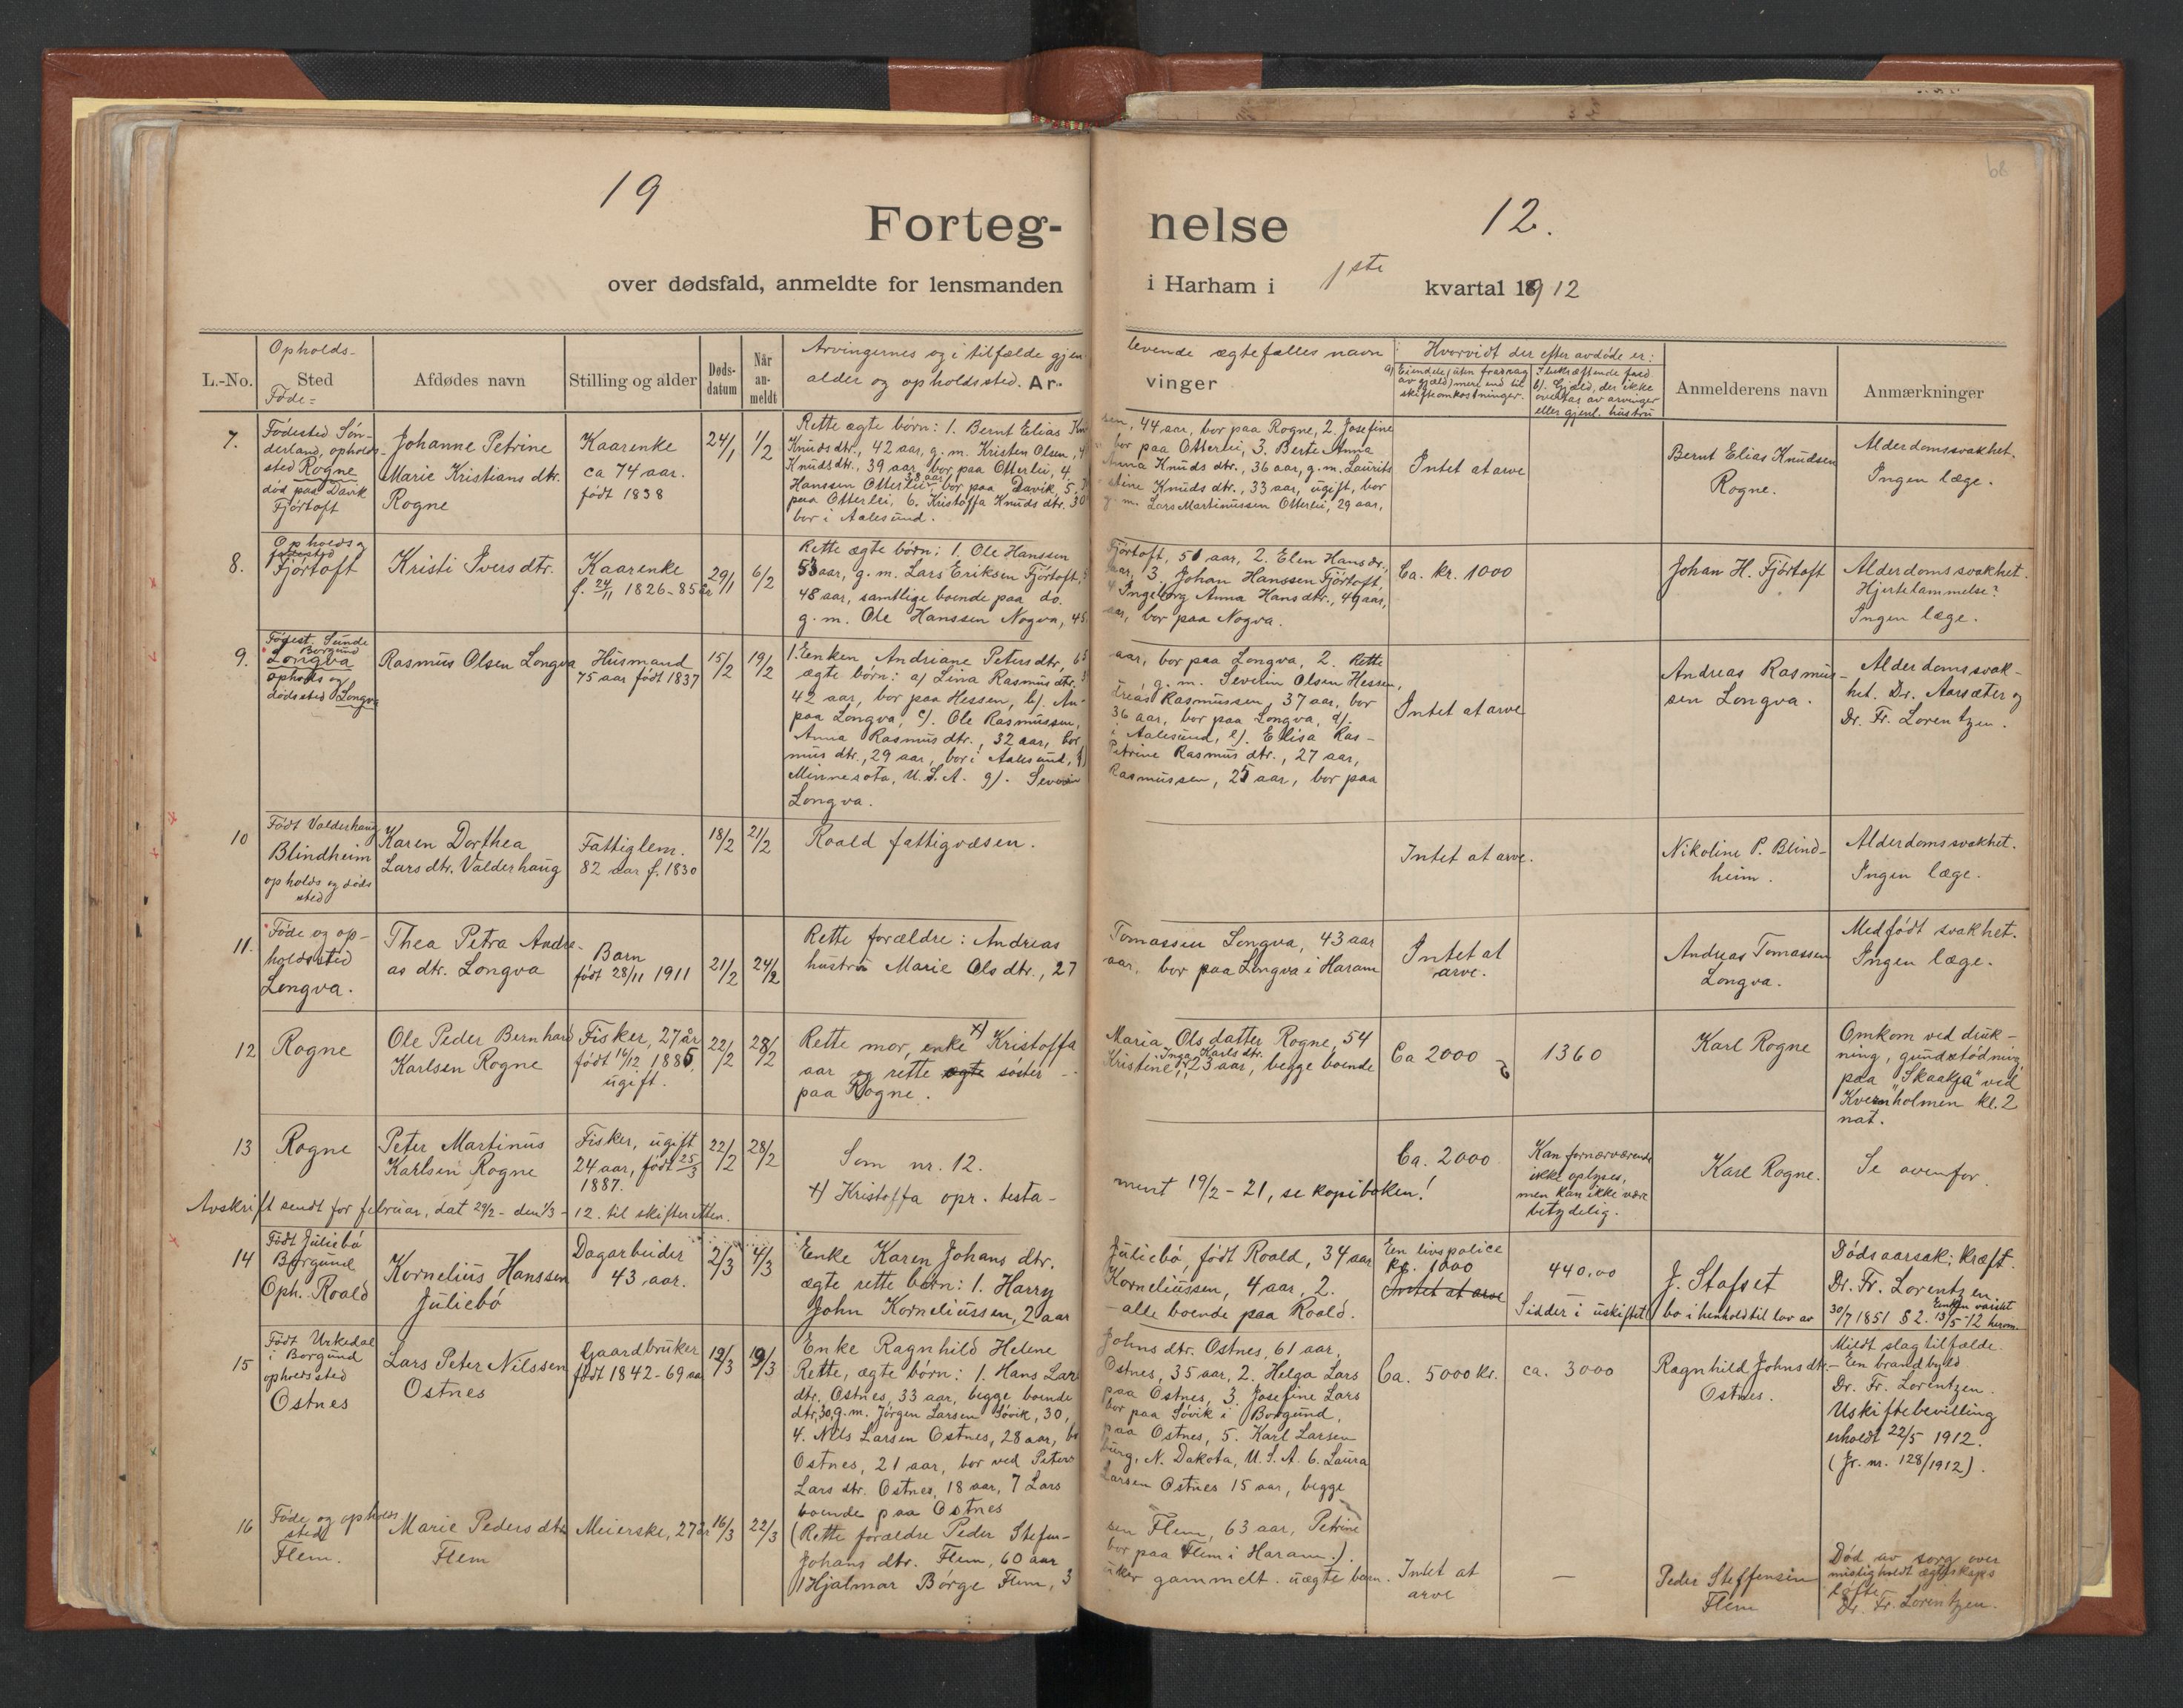 19
12.
68
Forteg-
nelse
over dødsfald, anmeldte for lensmanden
i Harham i 1ste kvartal 1912
L.-No.
Opholds-
Sted
Føde-
Afdødes navn
Stilling og alder
Døds-
datum
Når
an-
meldt
Arvingernes og i tilfælde gjen-
levende ægtefælles navn
alder og opholdssted. Ar-
vinger
Hvorvidt der efter avdøde er:
a) Eiendele (uten fradrag
av gjæld) mere end til
skifteomkostninger.
b). Gjæld, der ikke
overtas av arvinger
eller gjenl. hustru
Anmelderens navn
Anmærkninger
7.
Fødested Søn-
derland, opholds-
sted Rogne
død paa Davik
Fjørtoft
Johanne Petrine
Marie Kristians dtr.
Rogne
Kaarenke
ca 74 aar.
født 1838
24/1
1/2
Rette ægte børn: 1. Bernt Elias Knud
sen, 44 aar, bor paa Rogne, 2. Josefine
Knuds dtr., 42 aar, g. m. Kristen Olsen,
bor paa Otterlei, 3. Berte Anna
Knuds dtr., 39 aar, bor paa Otterlei, 4.
Anna Knuds dtr., 36 aar, g. m. Laurits
Hanssen Otterlei 38 aar bor paa Davik, 5.
stine Knuds dtr., 33 aar, ugift, bor
paa Otterlei, 6. Kristoffa Knuds dtr. 30
g. m. Lars Martinussen Otterlei, 29 aar,
bor i Aalesund.
Intet at arve
Bernt Elias Knudsen
Rogne.
Alderdomssvakhet.
Ingen læge.
8.
Opholds og
fødested
Fjørtoft
Kristi Ivers dtr.
Kaarenke
f. 24/11 1826 - 85 aar
29/1
6/2
Rette ægte børn: 1. Ole Hanssen
Fjørtoft, 51 aar, 2. Elen Hansdr.,
53 aar, g. m. Lars Eriksen Fjørtoft,
aar, 3. Johan Hanssen Fjørtoft,
48 aar, samtlige boende paa do.
4 Ingeborg Anna Hansdtr., 49 aar,
g. m. Ole Hanssen Nogva, 45
aar, bor paa Nogva.
Ca. kr. 1000
Johan H. Fjørtoft
Alderdomssvakhet.
Hjertelammelse?
Ingen læge.
9.
Fødest. Sunde
Borgund
Longva
opholds og
dødssted Longva
Rasmus Olsen Longva
Husmand
75 aar født 1837
15/2
19/2
1. Enken Andriane Petersdtr, 63
aar, bor paa Longva, 2. Rette
ægte børn: a) Lina Rasmus dtr.
g. m. Severin Olsen Hessen,
42 aar, bor paa Hessen, b). An-
dreas Rasmussen, 37 aar, bor
paa Longva, c). Ole Rasmussen,
36 aar, bor paa Longva, d).
Anna Rasmus dtr., 32 aar, bor
i Aalesund, e). Elisa Ras-
mus dtr., 29 aar, bor i Aalesund, f)
Petrine Rasmus dtr., 27 aar,
Minnesota, U.S.A. g). Severin
Rasmussen, 25 aar, bor paa
Longva.
Intet at arve
Andreas Rasmus-
sen Longva.
Alderdomssvak-
het. Dr. Aarsæter og
Dr. Fr. Lorentzen.
10
Født Valderhaug
Blindheim
opholds og døds
sted
Karen Dorthea
Lars dtr. Valderhaug
Fattiglem.
82 aar f. 1830
18/2
21/2
Roald fattigvæsen.
Intet at arve.
Nikoline P. Blind-
heim.
Alderdomssvakhet.
Ingen læge.
11.
Føde og op-
holdssted
Longva.
Thea Petra Andre-
as dtr. Longva
Barn
født 28/11 1911
21/2
24/2
Rette forældre: Andreas
Tomassen Longva, 43 aar
hustru Marie Ols dtr., 27
aar, bor paa Longva i Haram
Intet at
arve.
Andreas Tomassen
Longva.
Medfødt svakhet.
Ingen læge.
12
Rogne
Ole Peder Bernhard
Karlsen Rogne
Fisker, 27 år
født 16/12 1885
ugift.
22/2
28/2
Rette mor, enke x) Kristoffa
Maria Olsdatter Rogne, 54
aar og rette ægte søster
Kristine Inga Karls dtr. 23 aar, begge boende
paa Rogne.
Ca 2000
1360
Karl Rogne
Omkom ved druk-
ning, grundstødning
paa "Skaakja" ved
Kvernholmen kl. 2
nat.
13
Rogne
Peter Martinus
Karlsen Rogne
Fisker, ugift
24 aar, født 25/3
1887.
22/2
28/2
Som nr. 12.
x) Kristoffa opr. testa-
ment 19/2 - 21, se kopiboken!
Ca. 2000
Kan fornærværende
ikke oplyses,
men kan ikke være
betydelig.
Karl Rogne.
Se ovenfor
Avskrift sendt for februar, dat 29/2 - den 1/3 - 12. til skifteretten.
14
Født Juliebø
Borgund
Oph. Roald
Kornelius Hanssen
Juliebø
Dagarbeider
43 aar.
2/3
4/3
Enke Karen Johans dtr.
Juliebø, født Roald, 34 aar
ægte rette børn: 1. Harry
Korneliussen, 4 aar, 2.
John Korneliussen, 2 aar
- alle boende paa Roald.
En livspolice
kr. 1000
Intet at arve
440.00
Sidder i uskiftet bo i henhold til lov av 30/7 1851 § 2.
J. Stafset
Dødsaarsak: kræft.
Dr. Fr. Lorentzen.
Enken varslet
13/5 - 12 herom.
15
Født Urkedal
i Borgund
opholdssted
Ostnes
Lars Peter Nilssen
Ostnes
Gaardbruker
født 1842 - 69 aar
12/3
19/3
Enke Ragnhild Helene
Johns dtr. Ostnes, 61 aar,
Rette, ægte børn: 1. Hans Lar
Ostnes, 35 aar, 2. Helga Lars
dtr. Ostnes, 33 aar, begge boende
paa Ostnes, 3. Josefine Lars
dtr, 30, g. m. Jørgen Larsen Søvik, 30,
bor paa Søvik i Borgund,
4. Nils Larsen Ostnes, 28 aar, bo
paa Ostnes, 5. Karl Larsen
Ostnes, 21 aar, bor ved Peters
burg, N. Dakota, U.S.A. 6. Laura
Lars dtr. Ostnes, 18 aar, 7 Lars
Larsen Ostnes 15 aar, begge
boende paa Ostnes
Ca. 5000 kr.
ca. 3000
Ragnhild Johns dtr.
Ostnes.
Mildt slagtilfælde.
- En brandbyld
Dr. Fr. Lorentzen.
Uskiftebevilling
erholdt 22/5 1912.
(Jr. nr. 128/1912).
16
Føde og opholds
sted
Flem.
Marie Peders dtr
Flem
Meierske, 27 år
16/3
22/3
(Rette forældre Peder Stefen-
sen Flem, 63 aar, Petrine
Johans dtr. Flem, 60 aar
bor paa Flem i Haram.).
Hjalmar Børge Flem, 3
uker gammelt. uægte barn.
Intet at
arve
—
Peder Steffensen
Flem
Død av sorg over
misligholdt ægteskaps
løfte
Dr. Fr. Lorentzen.